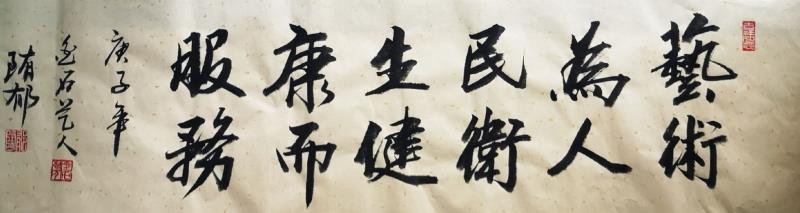 藝術
為人
民衛
生健
康而
服務
庚子年
金石艺人
賄郁